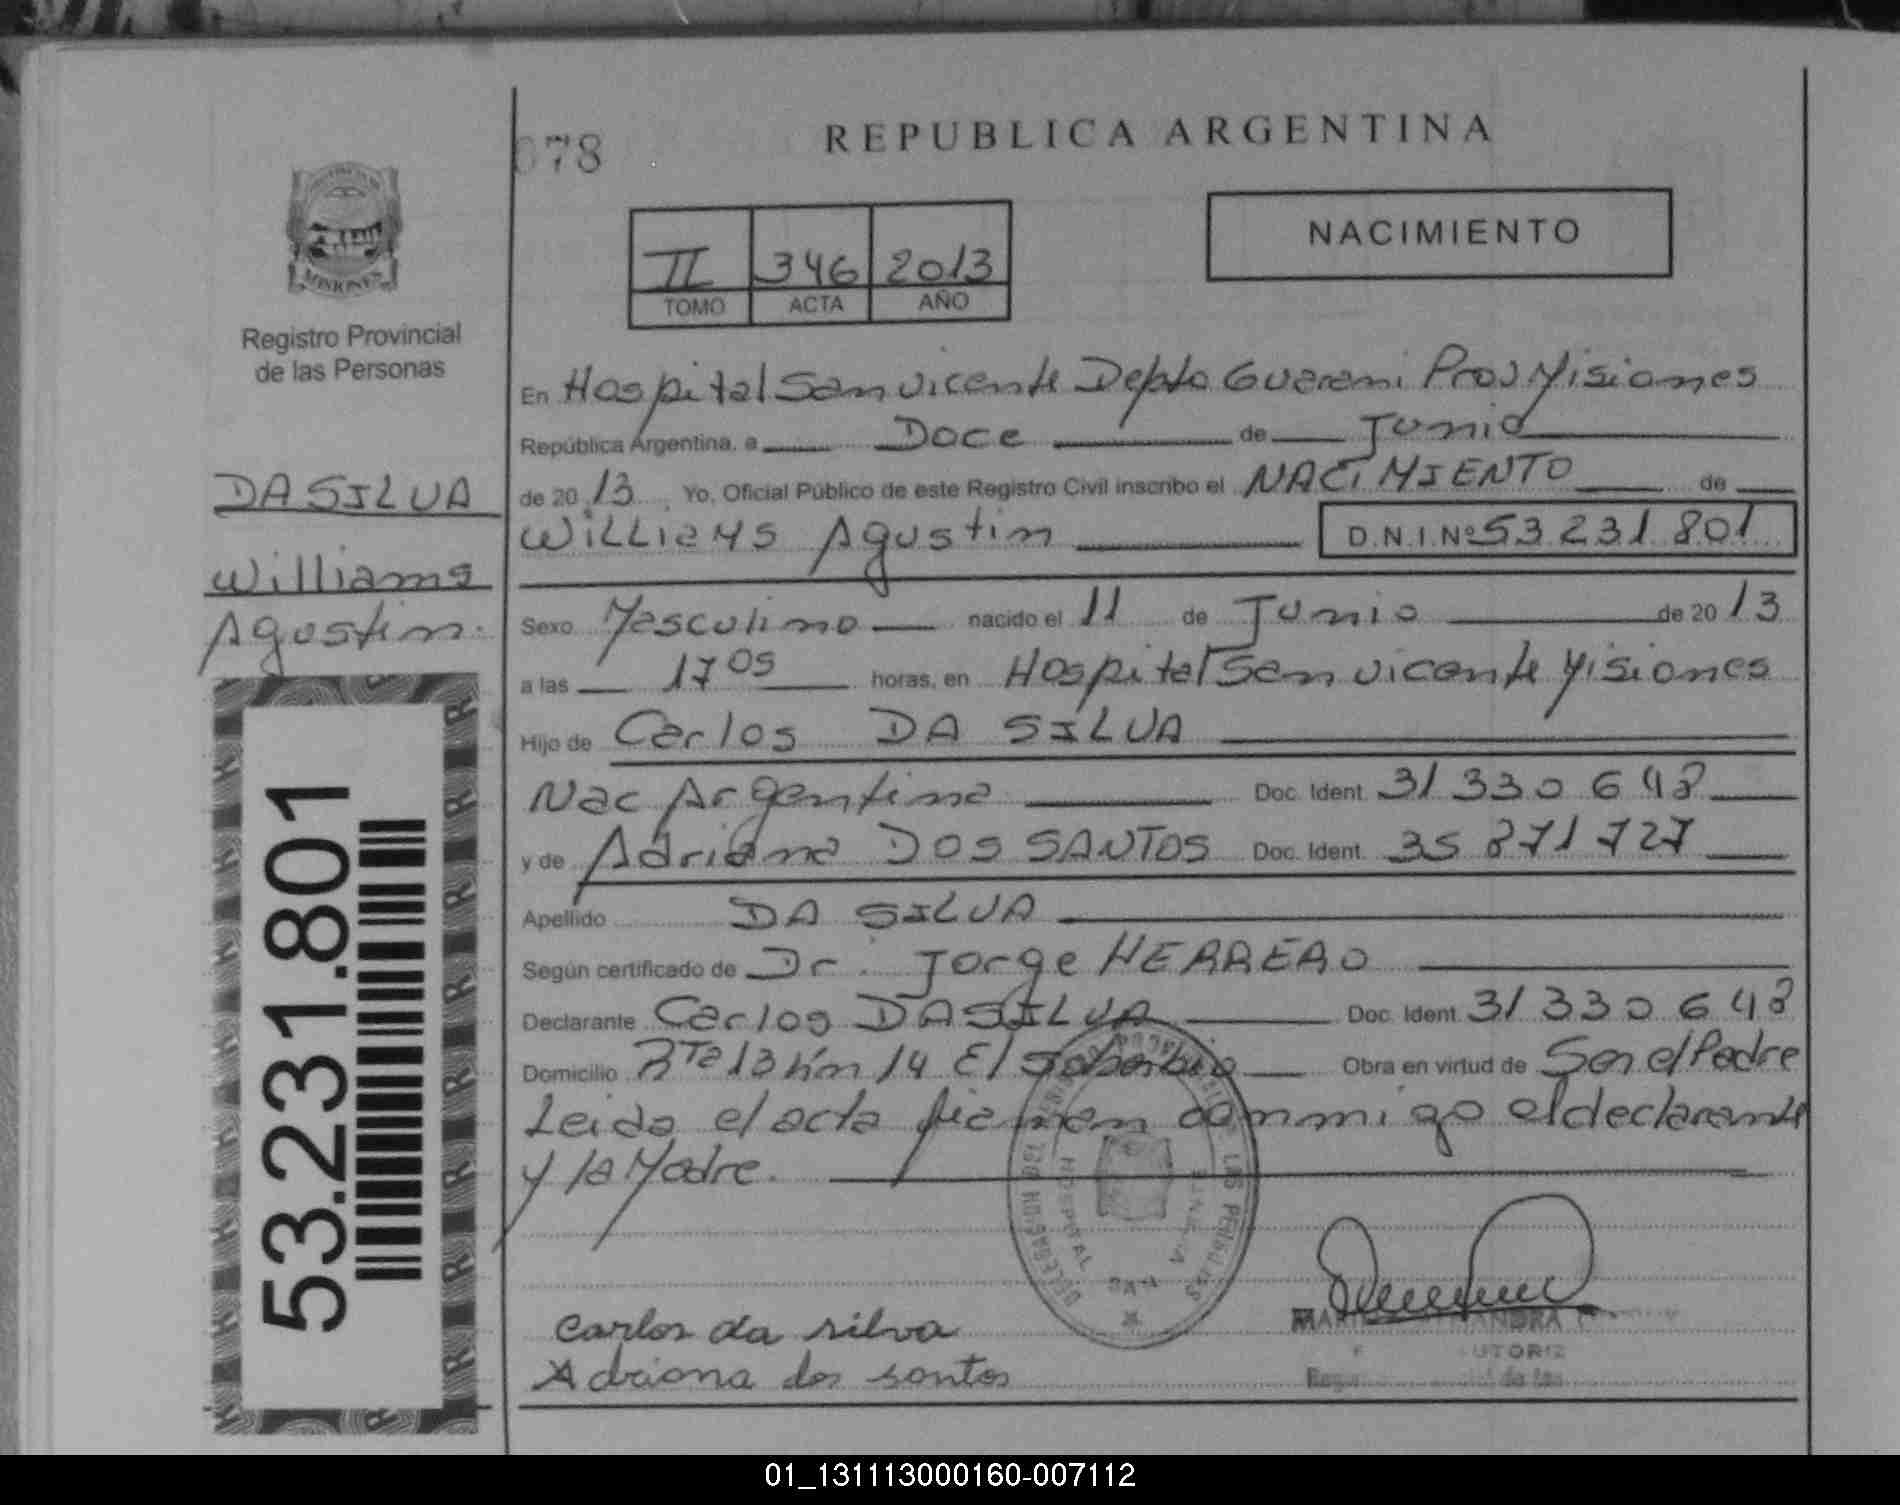 078
REPUBLICA ARGENTINA
MISIONES
Registro Provincial
de las Personas
II 346 2013
TOMO ACTA AÑO
NACIMIENTO
DA SILVA
Williams
Agustin.
53.231.801
En Hospital San vicente Depto Guarani Prov Misiones
República Argentina, a Doce de Junio
de 20 13 Yo, Oficial Público de este Registro Civil inscribo el NACIMIENTO de
WILLIAMS Agustin D.N.I.Nº 53 231 801
Sexo Masculino nacido el 11 de Junio de 20 13
a las 17 05 horas, en Hospital San vicente Misiones
Hijo de Carlos DA SILVA
Nac Argentina Doc. Ident. 31 330 648
y de Adriana DOS SANTOS Doc. Ident. 35 871 727
Apellido DA SILVA
Según certificado de Dr. Jorge HERRERO
Declarante Carlos DA SILVA Doc. Ident. 31 330 648
Domicilio Rta 13 km 14 El Soberbio Obra en virtud de Ser el Padre
Leida el acta firman conmigo el declarante
y la Madre.
HOSPITAL SAN VICENTE
carlos da silva
Adriana dos santos
01_131113000160-007112